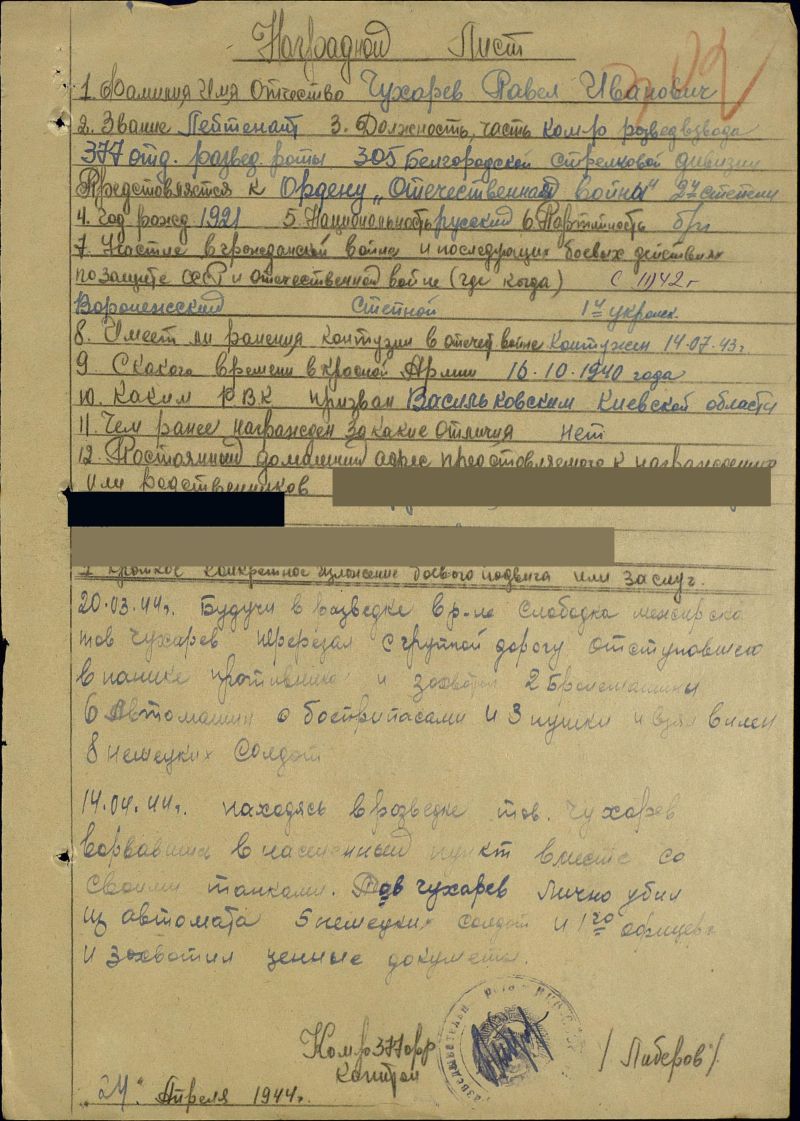 Наградной Лист
1. Фамилия Имя Отчество Чухарев Павел Иванович
2. Звание Лейтенант 3. Должность, часть ком-р разведвзвода
377 отд. развед. роты 305 Белгородской стрелковой дивизии
Представляется к Ордену „Отечественная войны" 2й степени
4. Год рожд. 1921 5. Национальность русский 6. Партийность б/п
7. Участие в гражданской войне и последующих боевых действиях
по защите СССР и отечественной войне (где когда) с 1942 г
Воронежский Степной 1й украинск.
8. Имеет ли ранения контузии в отечеств войне Контужен 14.07.43 г.
9. С какого времени в красной Армии 16.10.1940 года
10. Каким РВК призван Васильковским Киевской области
11. Чем ранее награжден За какие отличия нет
12. Постоянный домашний адрес представляемого к награждению
или родственников
I краткое конкретное изложение боевого подвига или заслуг.
20.03.44 г. Будучи в разведке в р-не Слободка
тов Чухарев перерезал с группой дорогу отступавшего
в панике противника и захватил 2 бронемашины
6 Автомашин с боеприпасами и 3 пушки и взял в плен
8 немецких солдат
14.04.44 г. находясь в разведке тов. Чухарев
ворвавшись в населенный пункт вместе со
своими танками. Тов Чухарев лично убил
из автомата 5 немецких солдат и 1го офицера
и захватил ценные документы.
Ком-р 377 орр
капитан /Либеров/
"24" Апреля 1944 г.